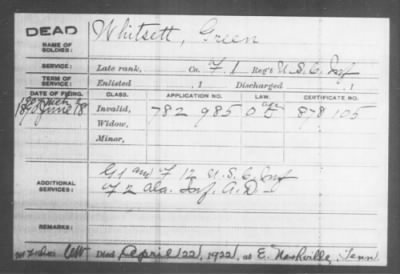 DEAD
NAME OF SOLDIER:
Whitsett, Green
SERVICE:
Late rank, Co. F 1 Reg't U.S.C. Inf
TERM OF SERVICE:
Enlisted , 1 Discharged , 1
DATE OF FILING. CLASS. APPLICATION NO. LAW. CERTIFICATE NO.
1890 June 18 Invalid, 782 985 878 105
Widow,
Minor,
ADDITIONAL SERVICES:
G 1 and F 12 U.S.C. Inf
F 2 Ala. Inf. A.D.
REMARKS:
Died April 22, 1922, at E. Nashville, Tenn